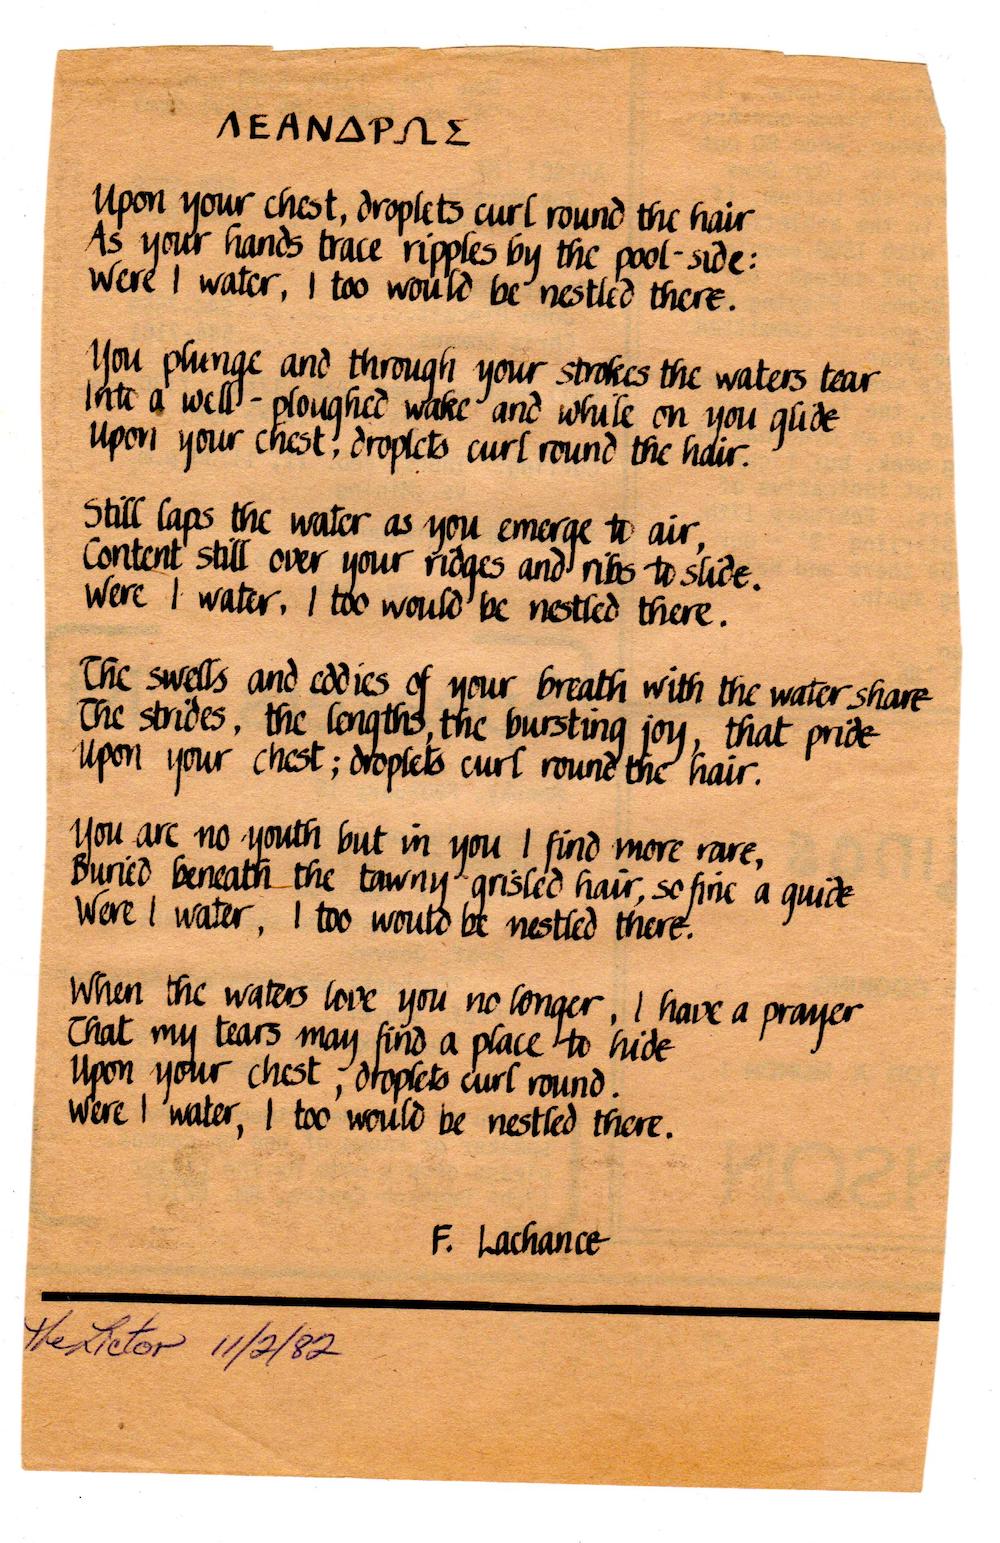 ΛΕΑΝΔΡΩΣ
Upon your chest, droplets curl round the hair
As your hands trace ripples by the pool-side:
Were I water, I too would be nestled there.
You plunge and through your strokes the waters tear
Into a well-ploughed wake and while on you glide
Upon your chest, droplets curl round the hair.
Still laps the water as you emerge to air,
Content still over your ridges and ribs to slide.
Were I water, I too would be nestled there.
The swells and eddies of your breath with the water share
The strides, the lengths, the bursting joy, that pride
Upon your chest; droplets curl round the hair.
You are no youth but in you I find more rare,
Buried beneath the tawny grisled hair, so fine a guide
Were I water, I too would be nestled there.
When the waters love you no longer, I have a prayer
That my tears may find a place to hide
Upon your chest; droplets curl round.
Were I water, I too would be nestled there.
F. Lachance
The Lictor 11/2/82